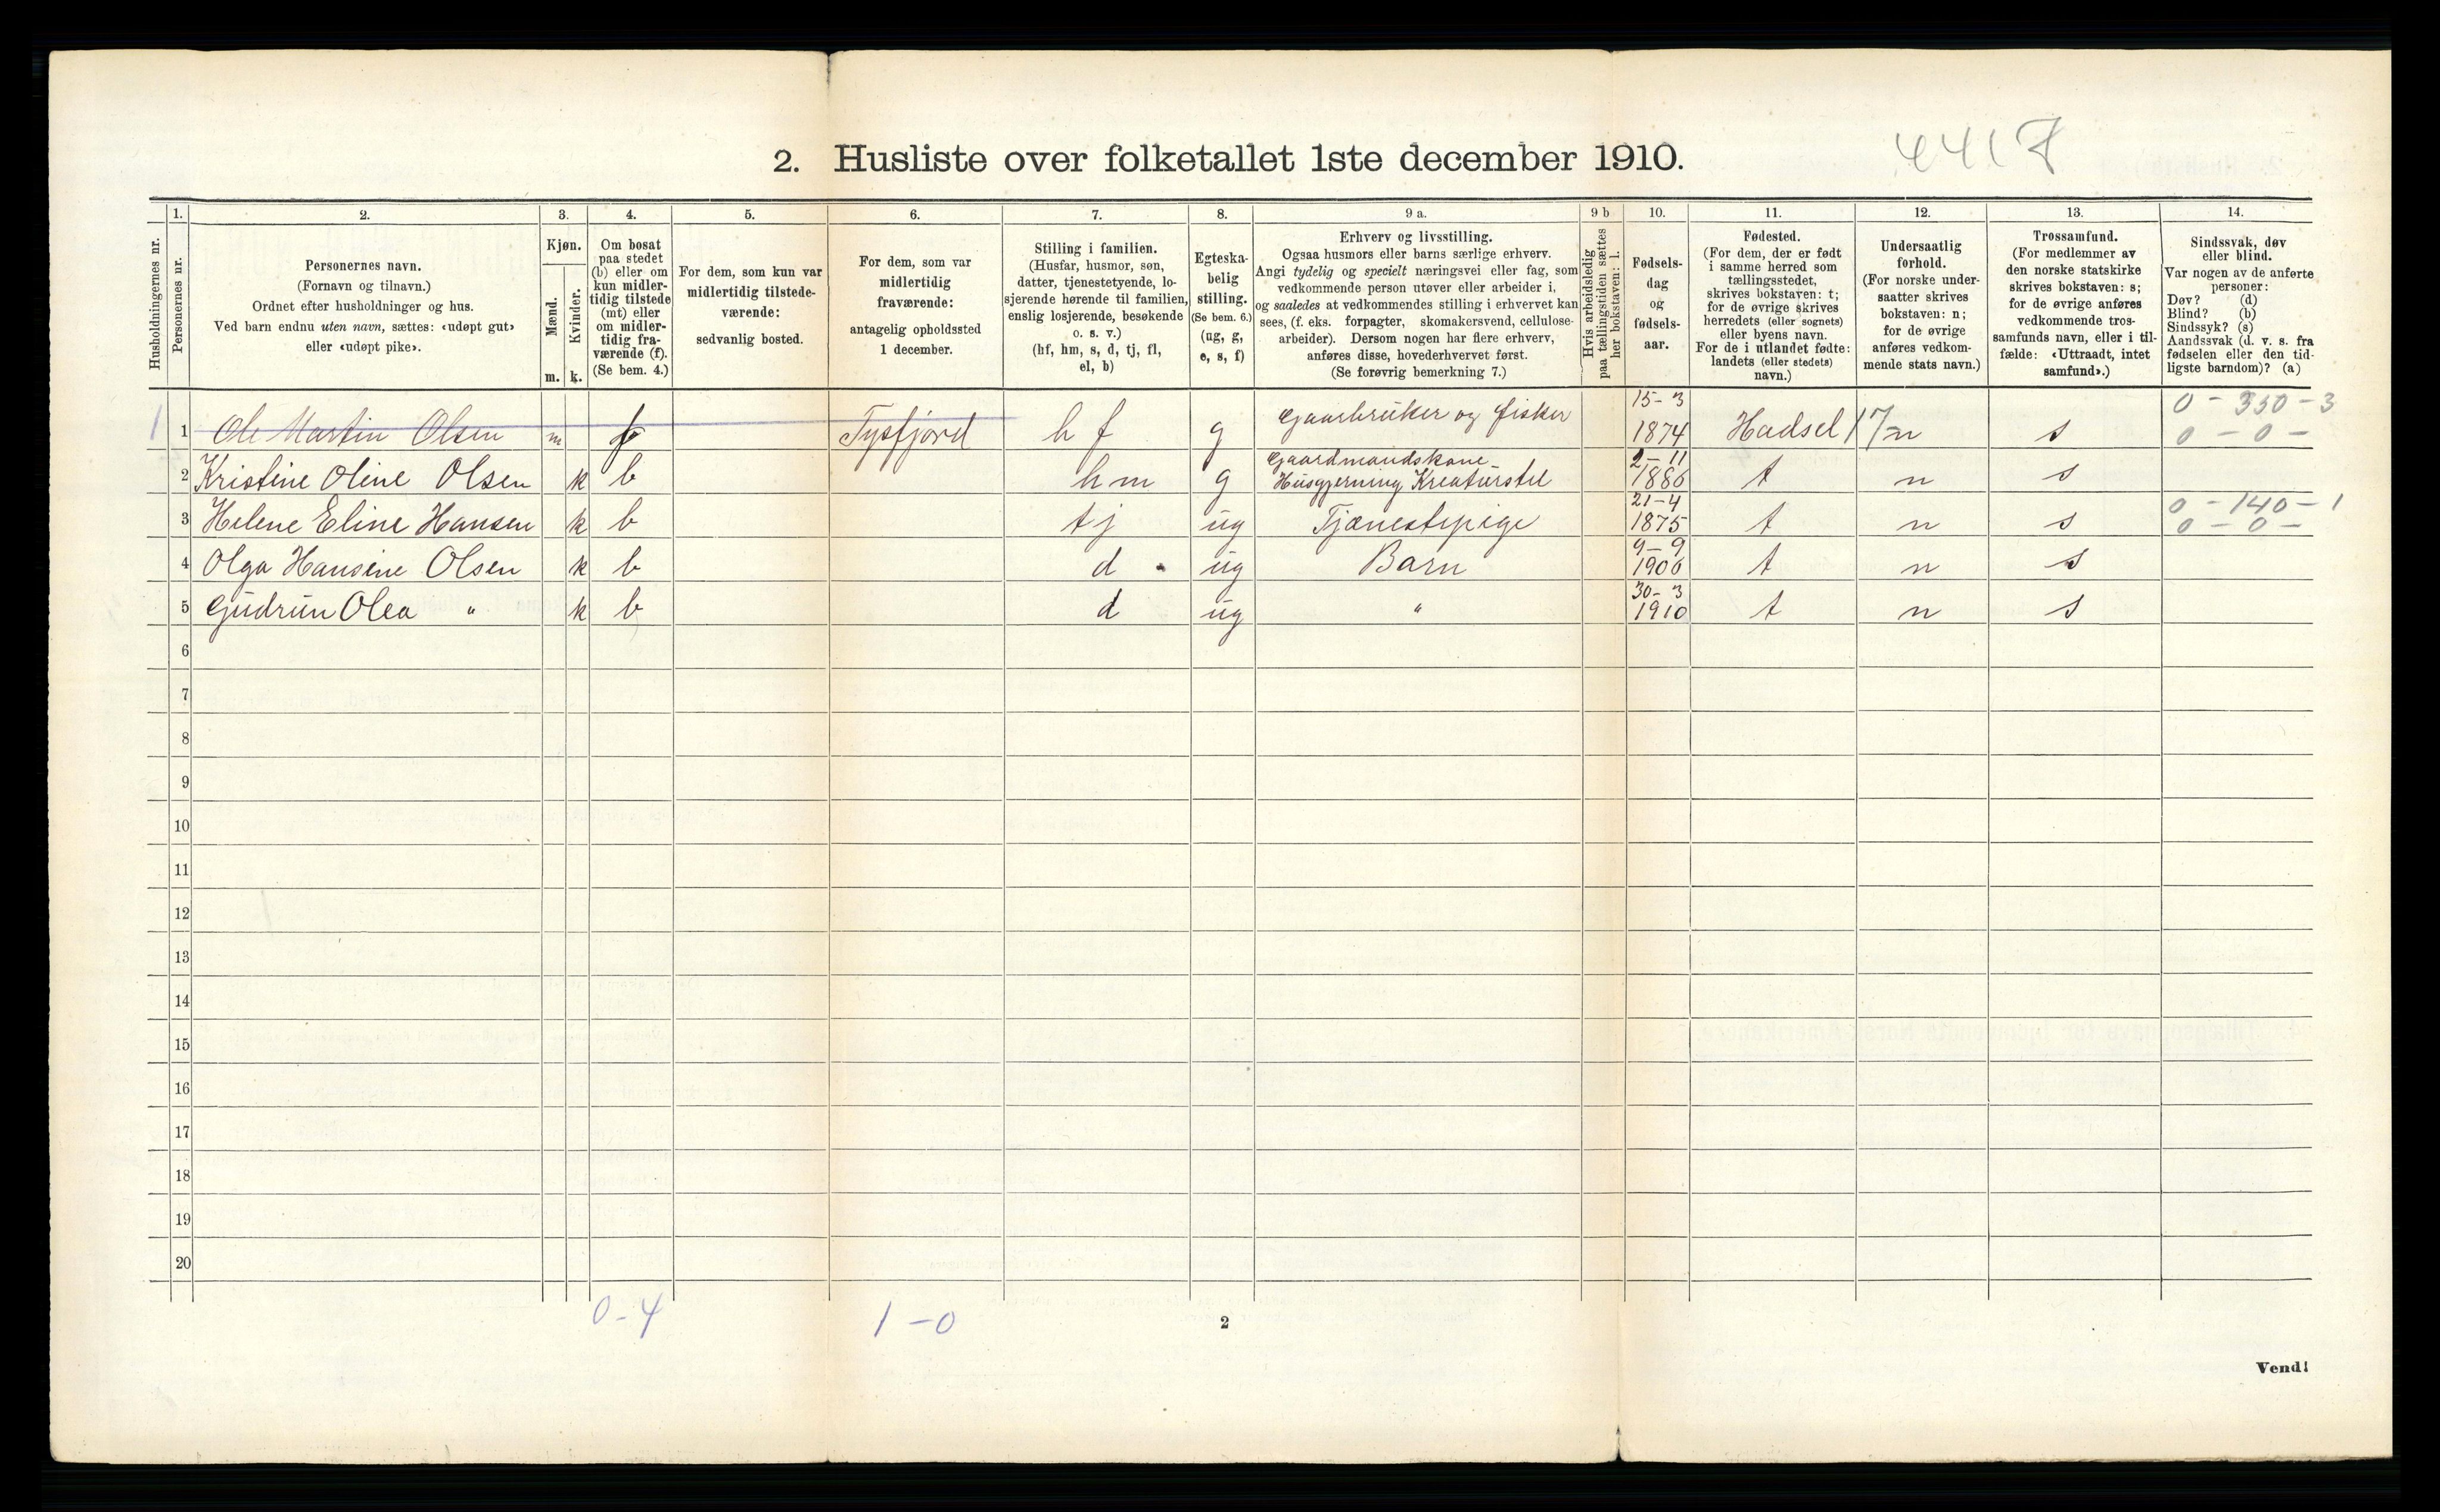 4417
2. Husliste over folketallet 1ste december 1910.
Husholdningernes nr.
1.
Personernes nr.
2.
Personernes navn.
(Fornavn og tilnavn.)
Ordnet efter husholdninger og hus.
Ved barn endnu uten navn, sættes: «udøpt gut»
eller «udøpt pike».
3.
Kjøn.
Mænd.
Kvinder.
m. k.
4.
Om bosat
paa stedet
(b) eller om
kun midler-
tidig tilstede
(mt) eller
om midler-
tidig fra-
værende (f).
(Se bem. 4.)
5.
For dem, som kun var
midlertidig tilstede-
værende:
sedvanlig bosted.
6.
For dem, som var
midlertidig
fraværende:
antagelig opholdssted
1 december.
7.
Stilling i familien.
(Husfar, husmor, søn,
datter, tjenestetyende, lo-
sjerende hørende til familien,
enslig losjerende, besøkende
o. s. v.)
(hf, hm, s, d, tj, fl,
el, b)
8.
Egteska-
belig
stilling.
(Se bem. 6.)
(ug, g,
e, s, f)
9 a.
Erhverv og livsstilling.
Ogsaa husmors eller barns særlige erhverv.
Angi tydelig og specielt næringsvei eller fag, som
vedkommende person utøver eller arbeider i,
og saaledes at vedkommendes stilling i erhvervet kan
sees, (f. eks. forpagter, skomakersvend, cellulose-
arbeider). Dersom nogen har flere erhverv,
anføres disse, hovederhvervet først.
(Se forøvrig bemerkning 7.)
9 b
Hvis arbeidsledig
paa tællingstiden sættes
her bokstaven: l.
10.
Fødsels-
dag
og
fødsels-
aar.
11.
Fødested.
(For dem, der er født
i samme herred som
tællingsstedet,
skrives bokstaven: t;
for de øvrige skrives
herredets (eller sognets)
eller byens navn.
For de i utlandet fødte:
landets (eller stedets)
navn.)
12.
Undersaatlig
forhold.
(For norske under-
saatter skrives
bokstaven: n;
for de øvrige
anføres vedkom-
mende stats navn.)
13.
Trossamfund.
(For medlemmer av
den norske statskirke
skrives bokstaven: s;
for de øvrige anføres
vedkommende tros-
samfunds navn, eller i til-
fælde: «Uttraadt, intet
samfund».)
14.
Sindssvak, døv
eller blind.
Var nogen av de anførte
personer:
Døv? (d)
Blind? (b)
Sindssyk? (s)
Aandssvak (d. v. s. fra
fødselen eller den tid-
ligste barndom)? (a)
1 1 Ole Martin Olsen m f Tysfjord hf g Gaarbruker og fisker 15-3 1874 Hadsel 17 n s 0-350-3 0-0-
2 Kristine Oline Olsen k b hm g Gaardmandskone Husgjerning Kreaturstel 2-11 1886 t n s
3 Helene Eline Hansen k b tj ug Tjænestepige 21-4 1875 t n s 0-140-1 0-0-
4 Olga Hansine Olsen k b d ug Barn 9-9 1906 t n s
5 Gudrun Olea " k b d ug " 30-3 1910 t n s
6
7
8
9
10
11
12
13
14
15
16
17
18
19
20
0-4 1-0
2
Vend!